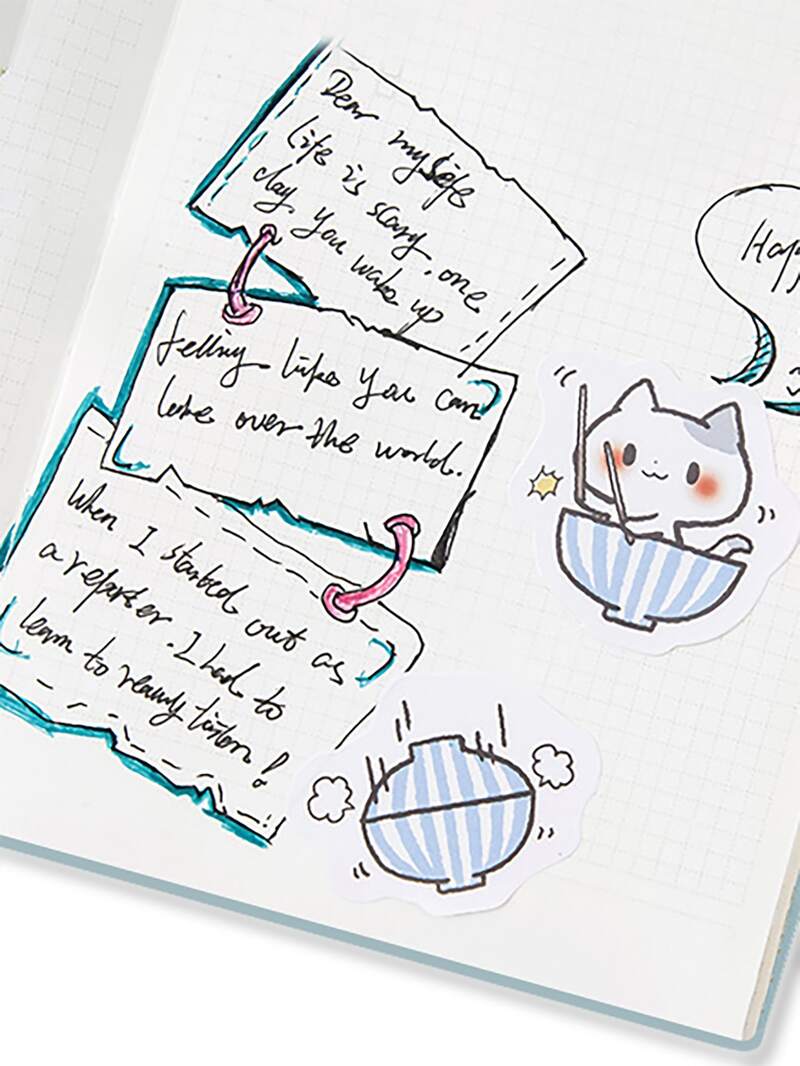 Dear myself
Life is scary, one
day you wake up
felling like you can
take over the world.
When I started out as
a reporter. I had to
learn to reany listen!
Hap